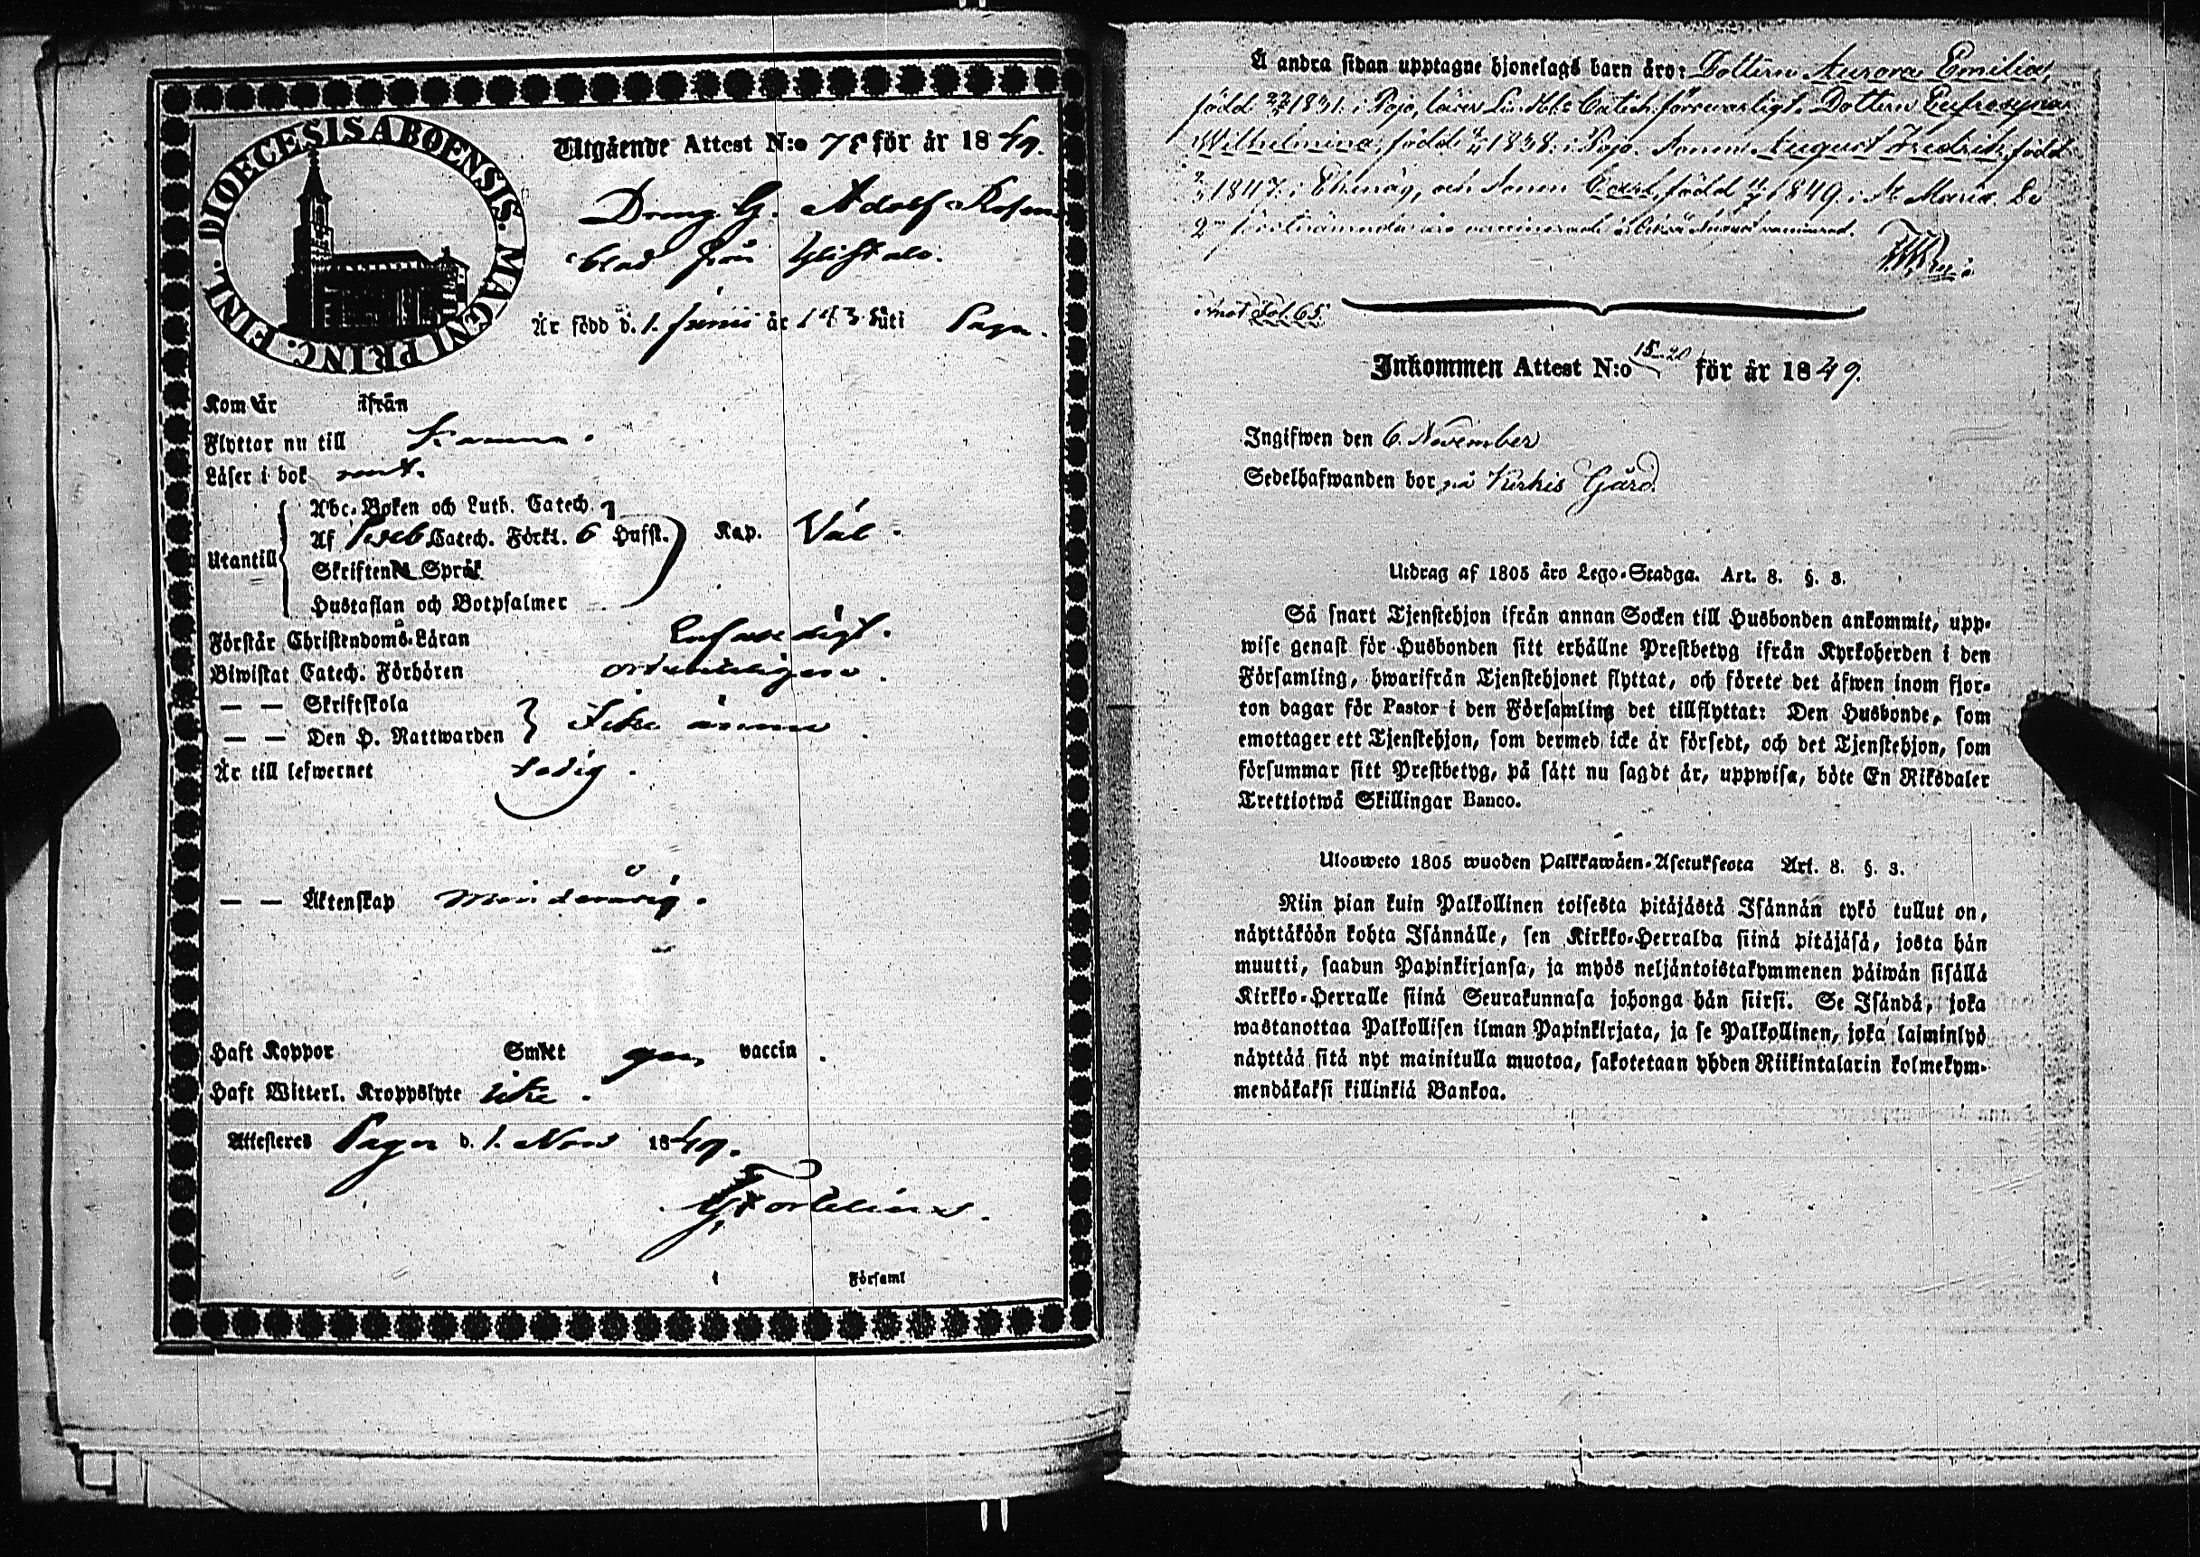 DIOECESIS ABOENSIS. MAGNI PRINC. FINL.
Utgående Attest N:o 78 för år 1849.
Dreng G. Adolf Rosen
blad från
Är född d. 1. Junii år 183 uti Pagar.
Kom År ifrån
Flyttar nu till
Läser i bok rent.
Utantill
Abc-Boken och Luth. Catech.
Af Sveb. Catech. Förkl. 6 Hufst. Kap. Väl.
Skriftens Språk
Hustaflan och Botpsalmer
Förstår Christendoms-Läran Enfaldigt.
Biwistat Catech. Förhören ordentligen.
— — Skriftskola
— — Den H. Nattwarden Icke ännu
Är till lefwernet stadig.
— — Äktenskap minderårig.
Haft Koppor Smitt gm vaccin.
Haft Witterl. Kroppslyte icke.
Attesteras Pagar d. 1. Nov. 1849.
Församl
Å andra sidan upptagne hjonelags barn äro: Dottern Aurora Emilia,
född 22/2 1831. i Pojo, läser Luth. Catech. försvarligt. Dottern Eufrosyna
Wilhelmina, född 1838. i Pojo. Sonen August Fredrik, född
1847. i Ekenäs, och Sonen Carl, född 1849. i St Maria. De
Fol. 65.
Inkommen Attest N:o 15-20 för år 1849.
Ingifwen den 6. November
Sedelhafwanden bor på Kirkis Gård.
Utdrag af 1805 års Lego-Stadga. Art. 8. §. 3.
Så snart Tjenstehjon ifrån annan Socken till Husbonden ankommit, upp-
wise genast för Husbonden sitt erhållne Prestbetyg ifrån Kyrkoherden i den
Församling, hwarifrån Tjenstehjonet flyttat, och förete det äfwen inom fjor-
ton dagar för Pastor i den Församling det tillflyttat: Den Husbonde, som
emottager ett Tjenstehjon, som dermed icke är försedt, och det Tjenstehjon, som
försummar sitt Prestbetyg, på sätt nu sagdt är, uppwisa, böte En Riksdaler
Trettiotwå Skillingar Banco.
Ulosweto 1805 wuoden Palkkawäen-Asetuksesta Art. 8. §. 3.
Niin pian kuin Palkollinen toisesta pitäjästä Isännän tykö tullut on,
näyttäköön kohta Isännälle, sen Kirkko-Herralda siinä pitäjäsä, josta hän
muutti, saadun Papinkirjansa, ja myös neljäntoistakymmenen päiwän sisällä
Kirkko-Herralle siinä Seurakunnasa johonga hän siirsi. Se Isändä, joka
wastanottaa Palkollisen ilman Papinkirjata, ja se Palkollinen, joka laiminlyö
näyttää sitä nyt mainitulla muotoa, sakotetaan yhden Riikintalarin kolmekym-
mendäkaksi killinkiä Bankoa.